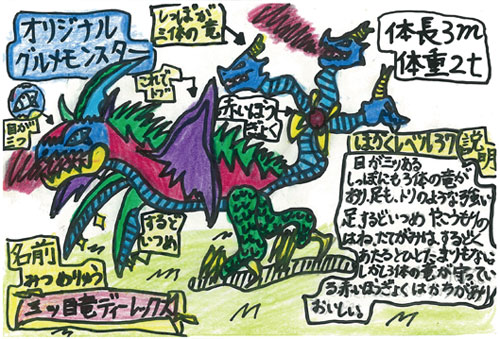 オリジナル
グルメモンスター
しっぽが
三体の竜
体長3m
体重2t
これで
トブ
赤いほう
ぎょく
目が
三つ
ほかくレベル37
説明
目が三ツある
しっぽにもう3体の竜が
おり、足も、トリのような強い
足、するどいつめ やこうもりの
はね、たてがみは、するどく
あたるとひとたまりもない
しかし3体の竜が守ってい
る赤いほうぎょくはかちがあり
おいしい。
するど
いつめ
名前
みつめりゅう
三ッ目竜ディーレックス